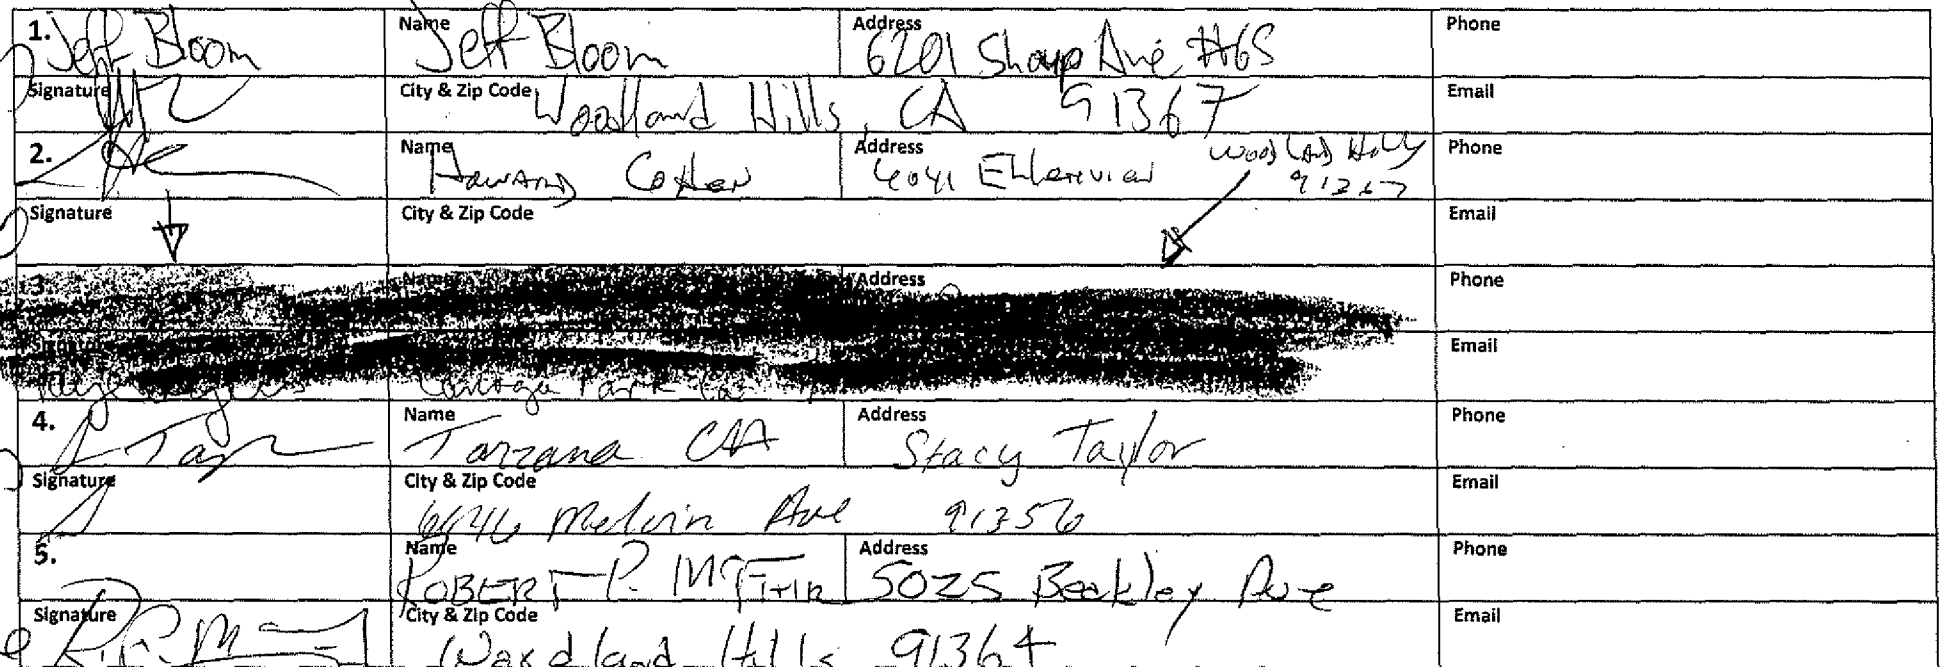 1. Jeff Bloom Name Jeff Bloom Address 6201 Shoup Ave #65 Phone
Signature City & Zip Code Woodland Hills, CA 91367 Email
2. Name Howard Address 4041 Woodland Hills 91367 Phone
Signature City & Zip Code Email
3. Name Address Phone
Canoga Park Ca Email
4. S Taylor Name Tarzana CA Address Stacy Taylor Phone
Signature City & Zip Code Melvin Ave 91356 Email
5. Name ROBERT P. Address 5025 Ave Phone
Signature City & Zip Code Woodland Hills 91364 Email